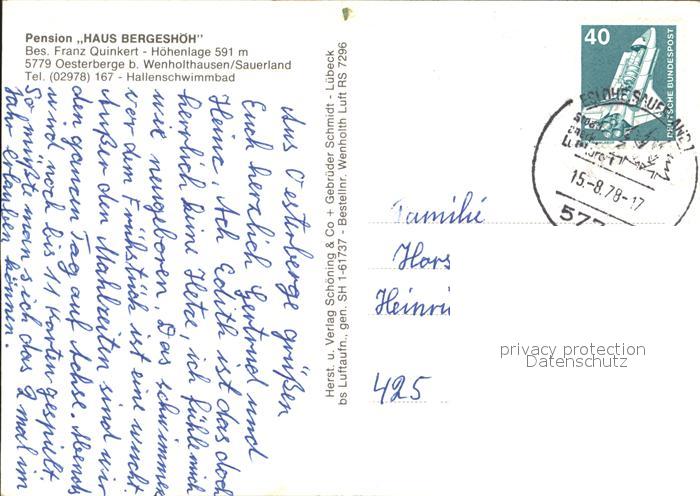 Pension „HAUS BERGESHÖH"
Bes. Franz Quinkert - Höhenlage 591 m
5779 Oesterberge b. Wenholthausen/Sauerland
Tel. (02978) 167 - Hallenschwimmbad
Aus Oesterberge grüßen
Euch herzlich Gertrud und
Heinz. Ach Edith ist das doch
herrlich keine Hetze, ich fühle mich
wie neugeboren. Das schwimmen
vor dem Frühstück ist eine wucht.
Außer den Mahlzeiten sind wir
den ganzen Tag auf Achse. Abends
wird noch bis 11 Karten gespielt.
So müßte man sich das 2 mal im
Jahr erlauben können.
Herst. u. Verlag Schöning & Co + Gebrüder Schmidt - Lübeck
bs Luftaufn., gen. SH 1-61737 - Bestellnr. Wenholth Luft RS 7296
40
DEUTSCHE BUNDESPOST
ESLOHE, SAUERLAND
15.-8.78-17
577
Familie
Hors
Heinri
425
privacy protection
Datenschutz